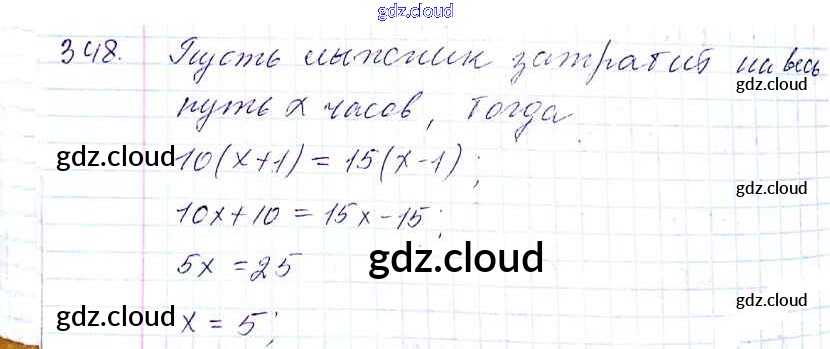 gdz.cloud
348. Пусть лыжник затратит на весь
gdz.cloud
путь x часов, тогда
gdz.cloud 10(x+1) = 15(x-1);
gdz.cloud
10x+10 = 15x-15;
5x = 25 gdz.cloud
gdz.cloud
gdz.cloud x = 5;